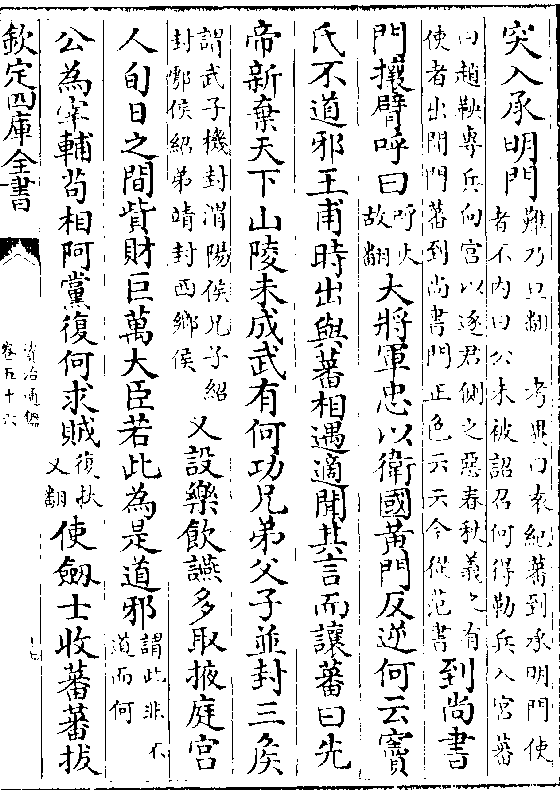 突入承明門難乃旦翻 考異曰袁紀蕃到承明門使
者不内曰公未被詔召何得勒兵入宫蕃
曰趙鞅專兵向宫以逐君側之惡春秋義之有
使者出開門蕃到尚書門正色云云今從范書到尚書
門攘臂呼曰呼火故翻大將軍忠以衛國黄門反逆何云竇
氏不道邪王甫時出與蕃相遇適聞其言而讓蕃曰先
帝新棄天下山陵未成武有何功兄弟父子並封三侯
謂武子機封渭陽侯兄子紹
封鄠侯紹弟靖封西鄉侯又設樂飲讌多取掖庭宫
人旬日之間貲財巨萬大臣若此為是道邪謂此非不道而何
公為宰輔苟相阿黨復何求賊復扶又翻使劔士收蕃蕃拔
欽定四庫全書
資治通鑑
卷五十六